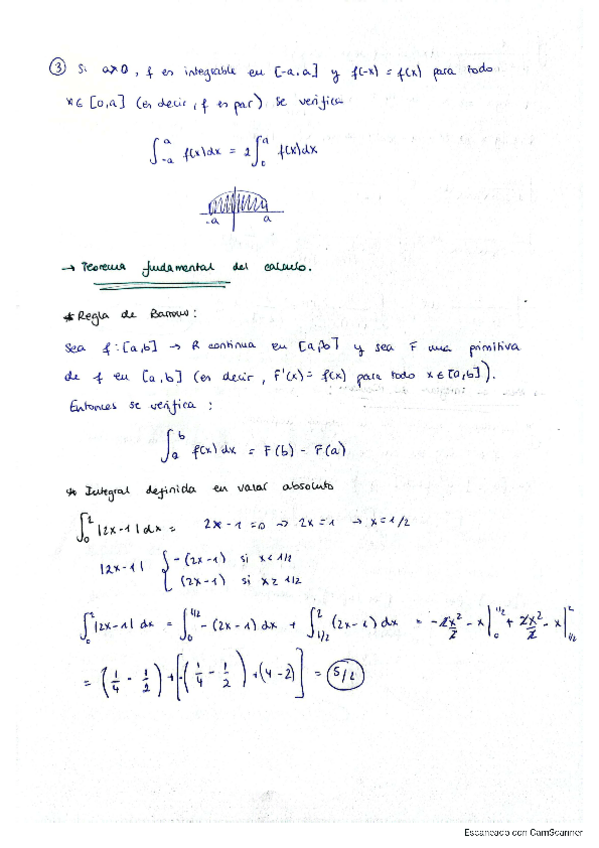 ③ Si a>0, f es integrable en [-a,a] y f(-x) = f(x) para todo
x∈[0,a] (es decir, f es par) se verifica
∫_{-a}^{a} f(x)dx = 2∫_0^a f(x)dx
-a a
→ Teorema fundamental del calculo.
* Regla de Barrow:
Sea f: [a,b] → R continua en [a,b] y sea F una primitiva
de f en [a,b] (es decir, F'(x) = f(x) para todo x∈[a,b]).
Entonces se verifica:
∫_a^b f(x)dx = F(b) - F(a)
* Integral definida en valor absoluto
∫_0^2 |2x-1|dx = 2x-1=0 → 2x=1 → x=1/2
|2x-1| { -(2x-1) si x<1/2
(2x-1) si x≥1/2
∫_0^2 |2x-1| dx = ∫_0^{1/2} -(2x-1)dx + ∫_{1/2}^2 (2x-1)dx = -2x²/2 - x|_0^{1/2} + 2x²/2 - x|_{1/2}^2
= (1/4 - 1/2) + [-(1/4 - 1/2) + (4-2)] = 5/2
Escaneado con CamScanner